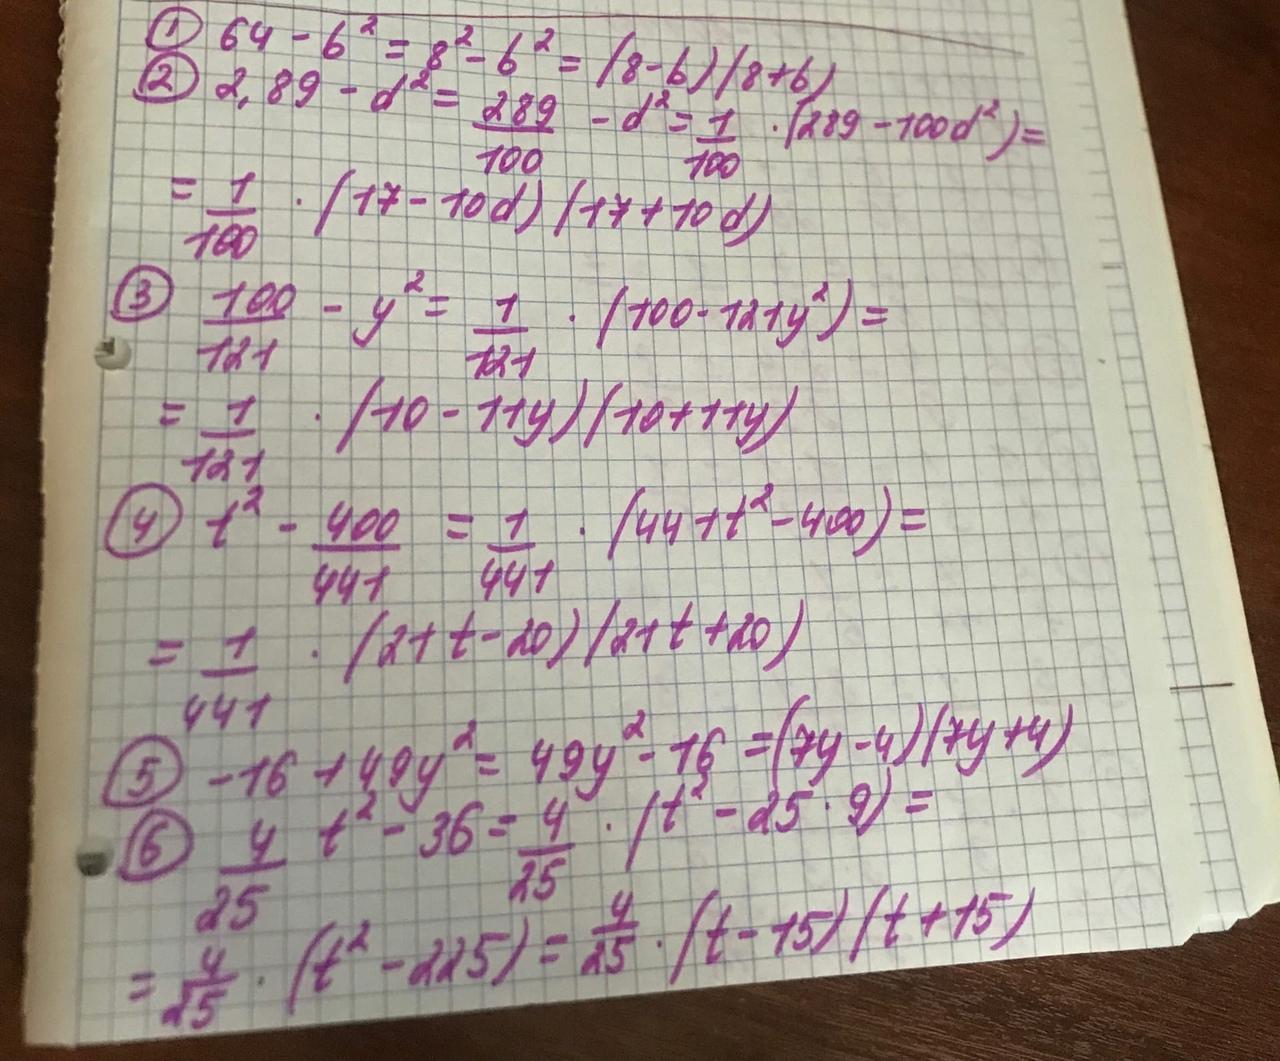 ① 64 - b² = 8² - b² = (8-b)(8+b)
② 2,89 - d² = 289/100 - d² = 1/100 · (289 - 100d²) =
= 1/100 · (17 - 10d)(17 + 10d)
③ 100/121 - y² = 1/121 · (100 - 121y²) =
= 1/121 · (10 - 11y)(10 + 11y)
④ t² - 400/441 = 1/441 · (441t² - 400) =
= 1/441 · (21t - 20)(21t + 20)
⑤ -16 + 49y² = 49y² - 16 = (7y - 4)(7y + 4)
⑥ 4/25 t² - 36 = 4/25 · (t² - 25 · 9) =
= 4/25 · (t² - 225) = 4/25 · (t - 15)(t + 15)